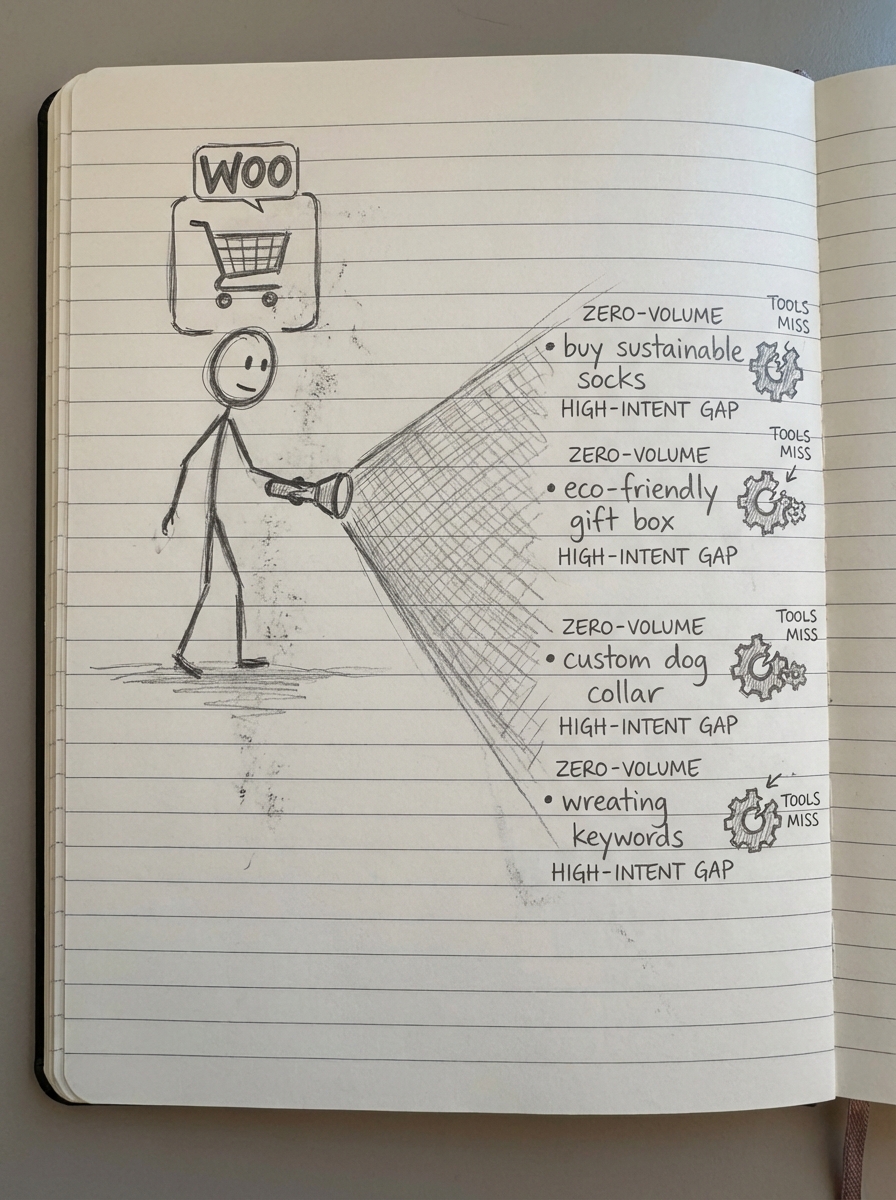 WOO
ZERO-VOLUME
TOOLS
MISS
• buy sustainable
socks
HIGH-INTENT GAP
ZERO-VOLUME
TOOLS
MISS
• eco-friendly
gift box
HIGH-INTENT GAP
ZERO-VOLUME
TOOLS
MISS
• custom dog
collar
HIGH-INTENT GAP
ZERO-VOLUME
• wreating
keywords
TOOLS
MISS
HIGH-INTENT GAP